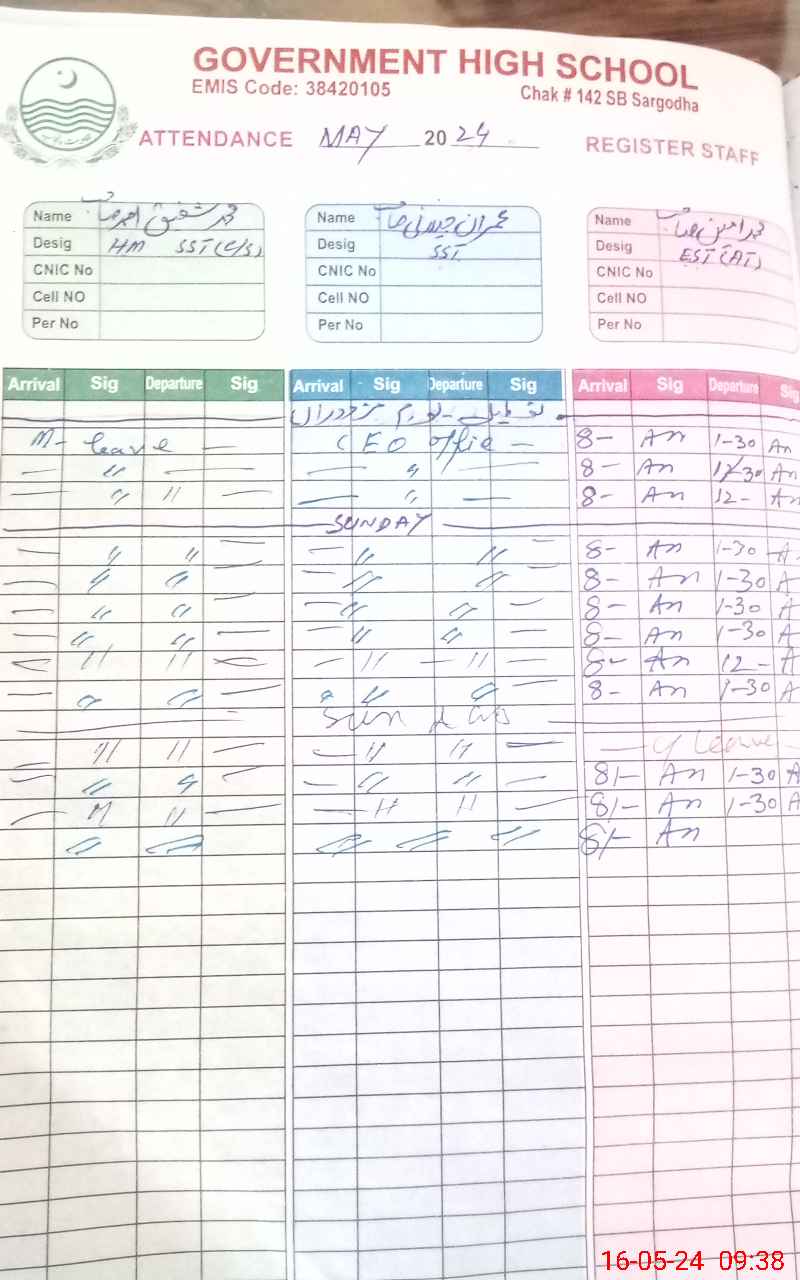 GOVERNMENT HIGH SCHOOL
EMIS Code: 38420105
Chak # 142 SB Sargodha
ATTENDANCE MAY 2024 REGISTER STAFF
Name محمد شفیق احمد صاحب Name عمران صاحب Name محمد امین صاحب
Desig HM SST (C/S) Desig SST Desig EST (AT)
CNIC No CNIC No CNIC No
Cell NO Cell NO Cell NO
Per No Per No Per No
Arrival Sig Departure Sig Arrival Sig Departure Sig Arrival Sig Departure Sig
تعطیل - یوم مزدوراں
M- leave — CEO office — 8- An 1-30 An
— 〃 — — 〃 — 8- An 12-30 An
— 〃 〃 — — 〃 — 8- An 12- An
SUNDAY
— 〃 〃 — — 〃 〃 — 8- An 1-30 A
— 〃 〃 — — 〃 〃 — 8- An 1-30 A
— 〃 〃 — — 〃 〃 — 8- An 1-30 A
— 〃 〃 — — 〃 〃 — 8- An 1-30 A
— 〃 〃 — — 〃 — 〃 — 8- An 12- A
— 〃 〃 — 〃 〃 〃 — 8- An 1-30 A
Sunday
— 〃 〃 — — 〃 〃 — — leave —
— 〃 〃 — — 〃 〃 — 8/- An 1-30 A
— 〃 〃 — — 〃 〃 — 8/- An 1-30 A
〃 〃 〃 〃 〃 8/- An
16-05-24 09:38